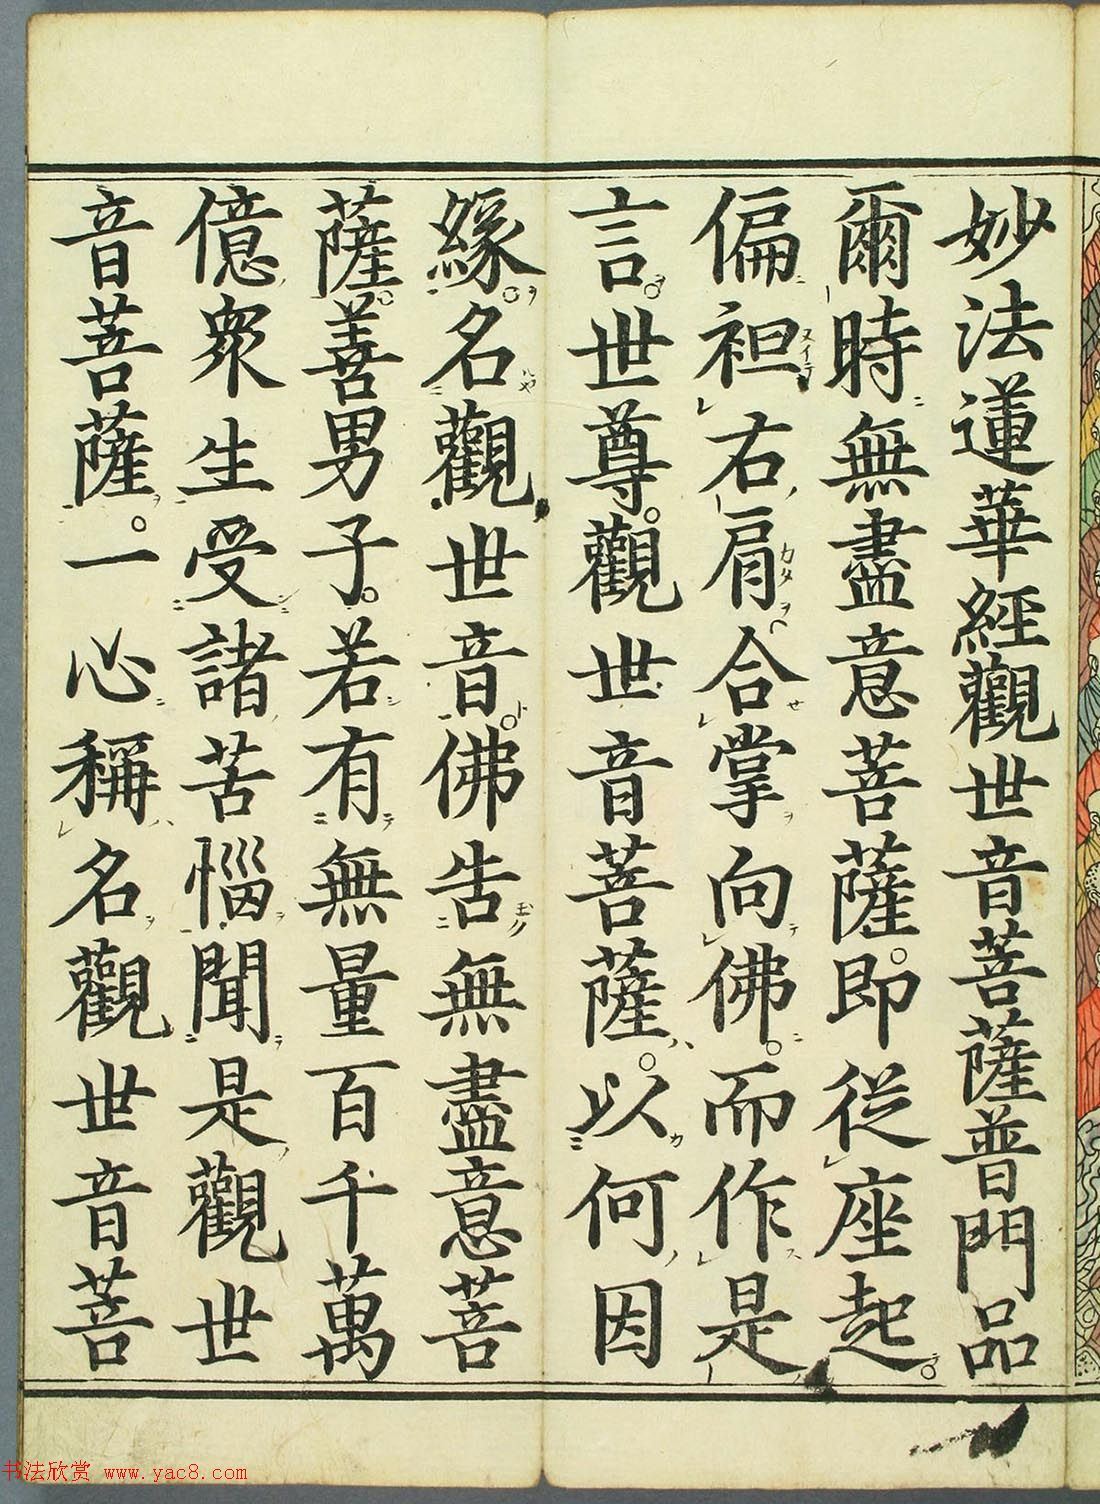 妙法蓮華經觀世音菩薩普門品
爾時無盡意菩薩。即從座起。
偏袒右肩合掌向佛。而作是
言。世尊。觀世音菩薩。以何因
緣。名觀世音。佛告無盡意菩
薩。善男子。若有無量百千萬
億衆生受諸苦惱聞是觀世
音菩薩。一心稱名觀世音菩
书法欣赏 www.yac8.com